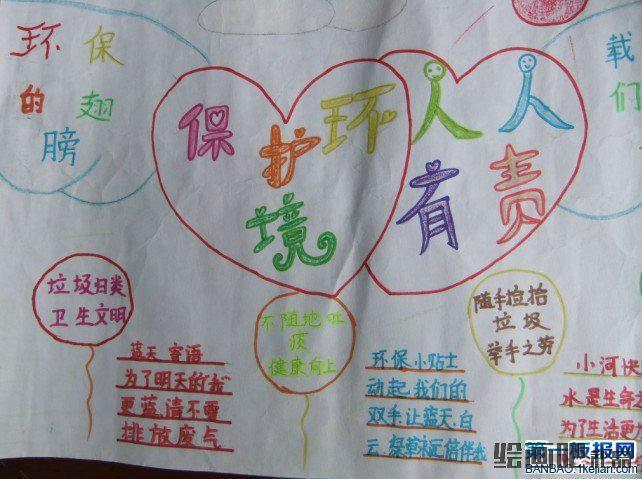 环保
的翅
膀
保护环
境
人人
有责
载
们
垃圾归类
卫生文明
不随地吐
痰
健康向上
随手捡拾
垃圾
举手之劳
蓝天寄语
为了明天的我
更蓝,请不要
排放废气
环保小贴士
动起我们的
双手,让蓝天.白
云.绿草永远陪伴我
小河快
水是生命
为了生活更
BANBAO.1kejian.com